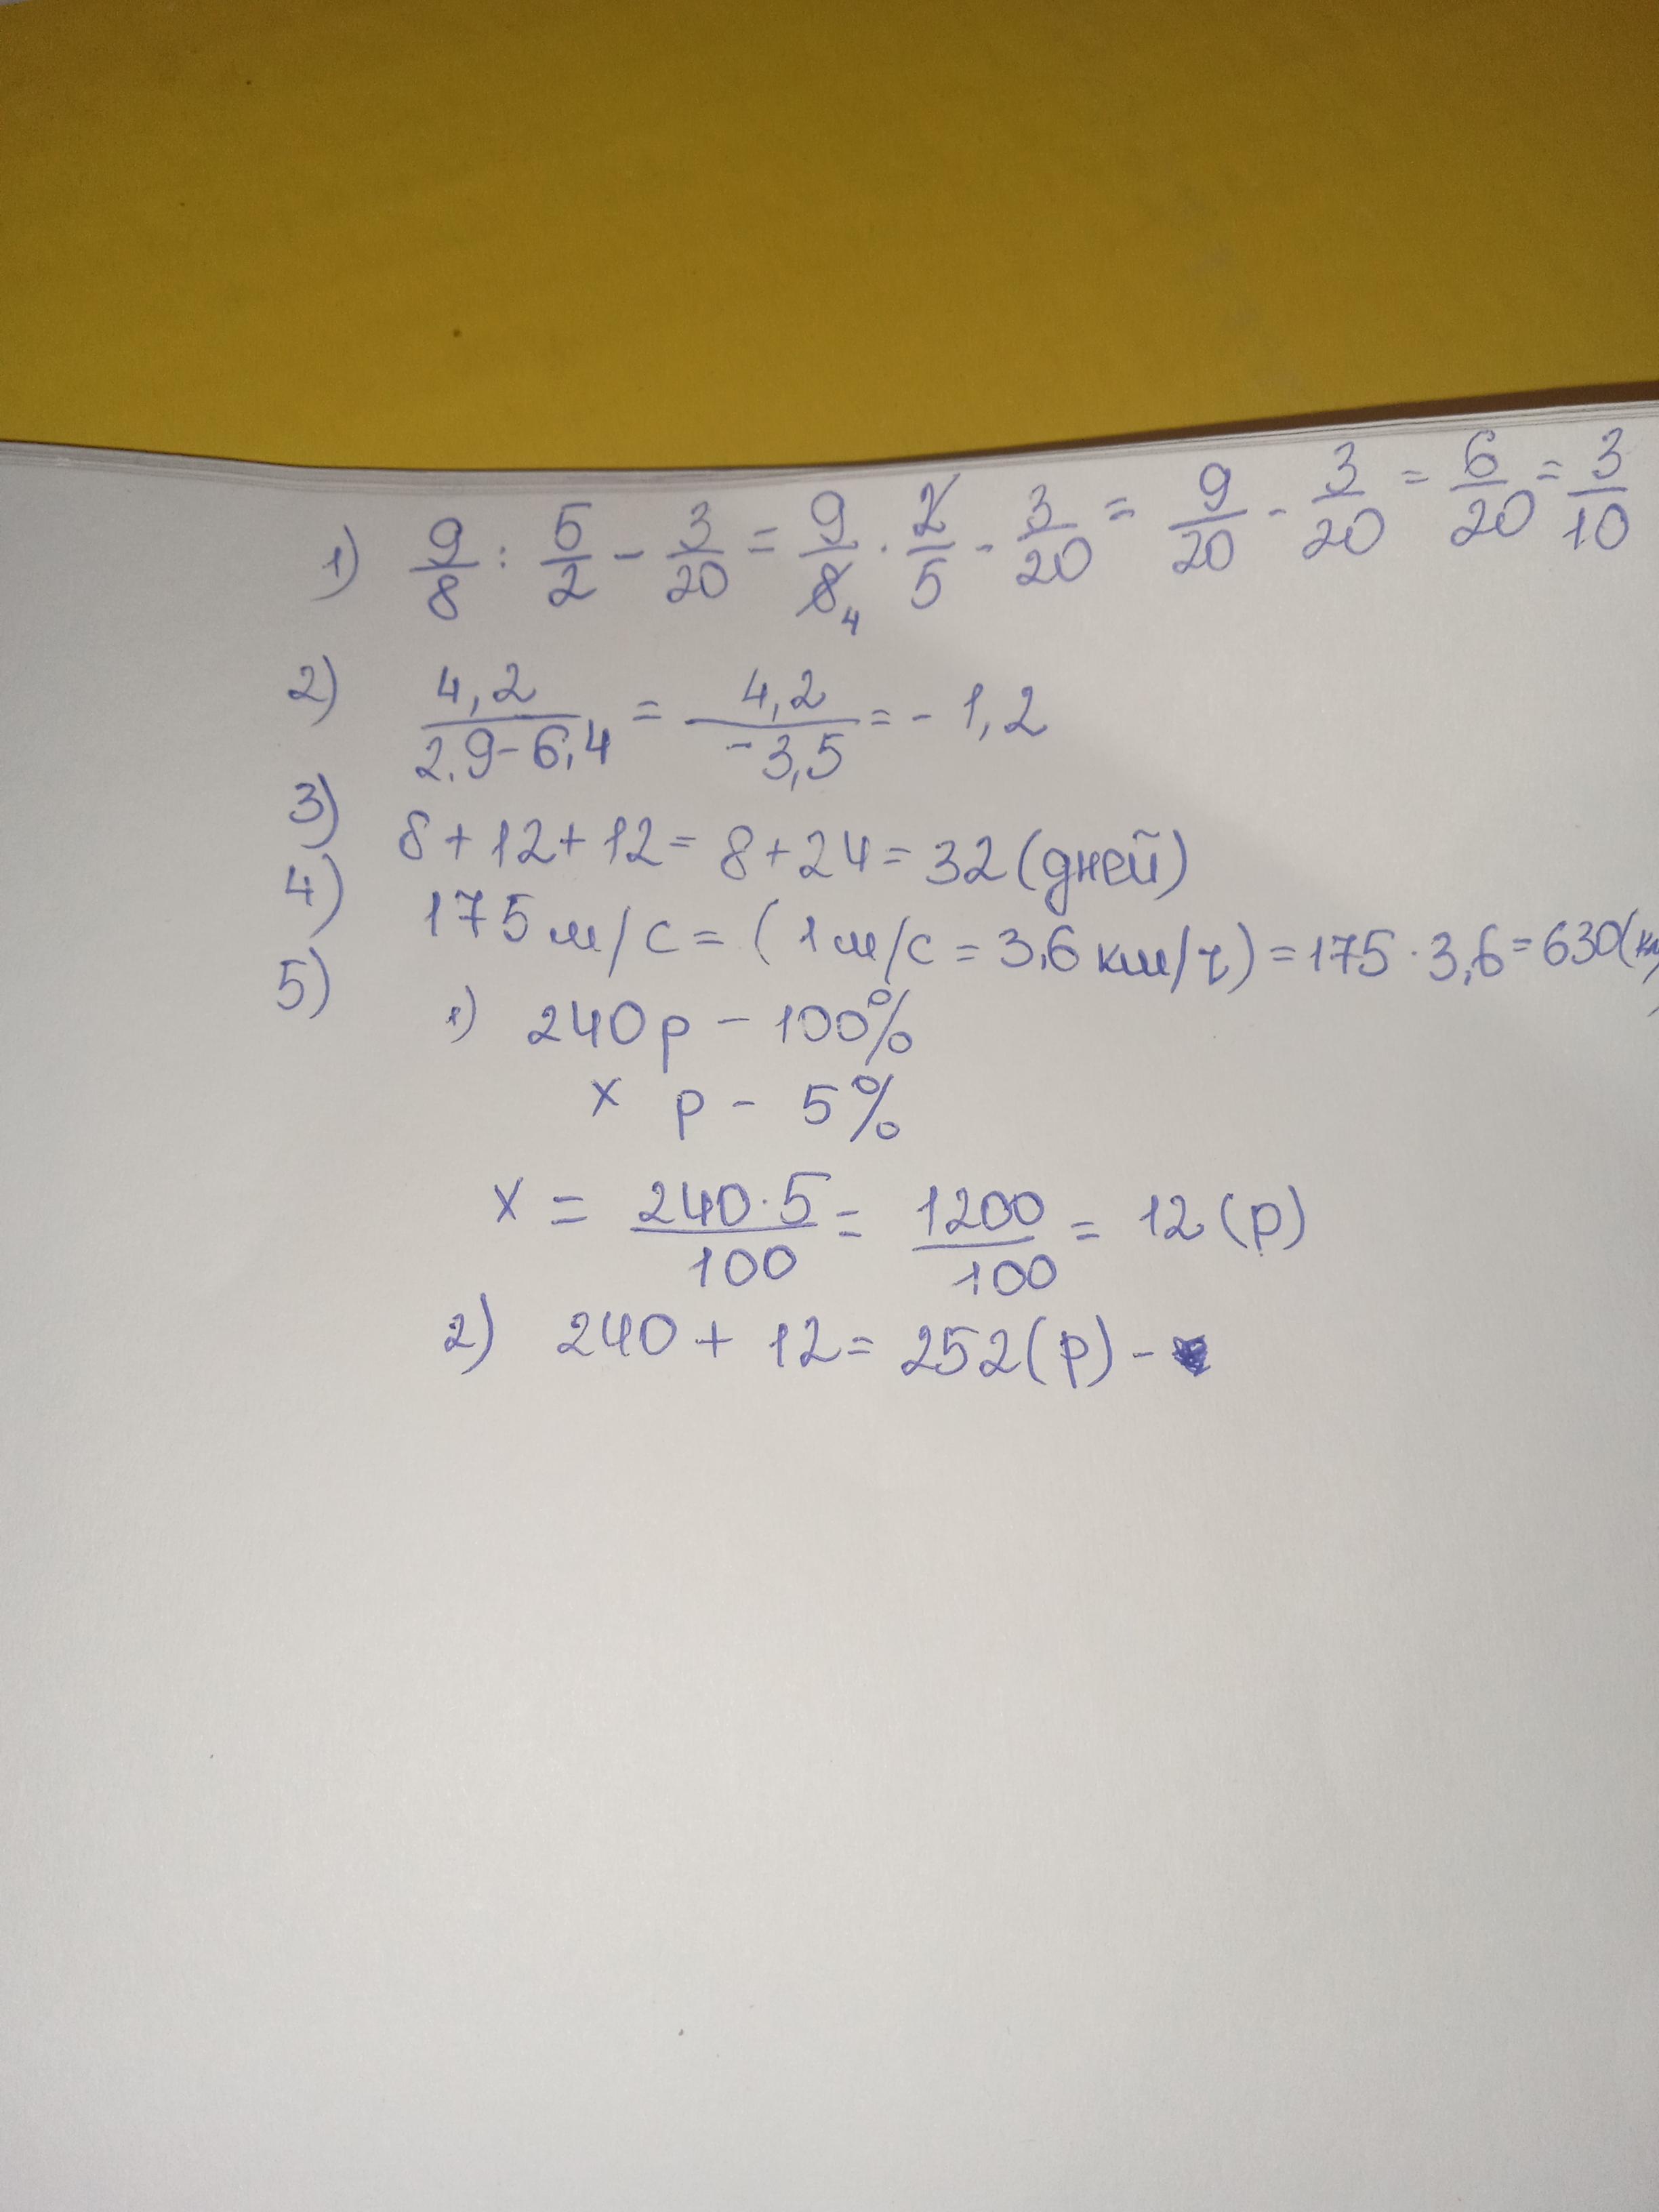 1) 9/8 : 5/2 - 3/20 = 9/8 4 · 2/5 - 3/20 = 9/20 - 3/20 = 6/20 = 3/10
2) 4,2/2,9-6,4 = 4,2/-3,5 = - 1,2
3) 8+12+12= 8+24= 32(дней)
4) 175 м/с = (1м/с = 3,6 км/ч) = 175 · 3,6 = 630(км
5) 1) 240р - 100%
x р - 5%
x = 240·5/100 = 1200/100 = 12(р)
2) 240 + 12 = 252(р) -